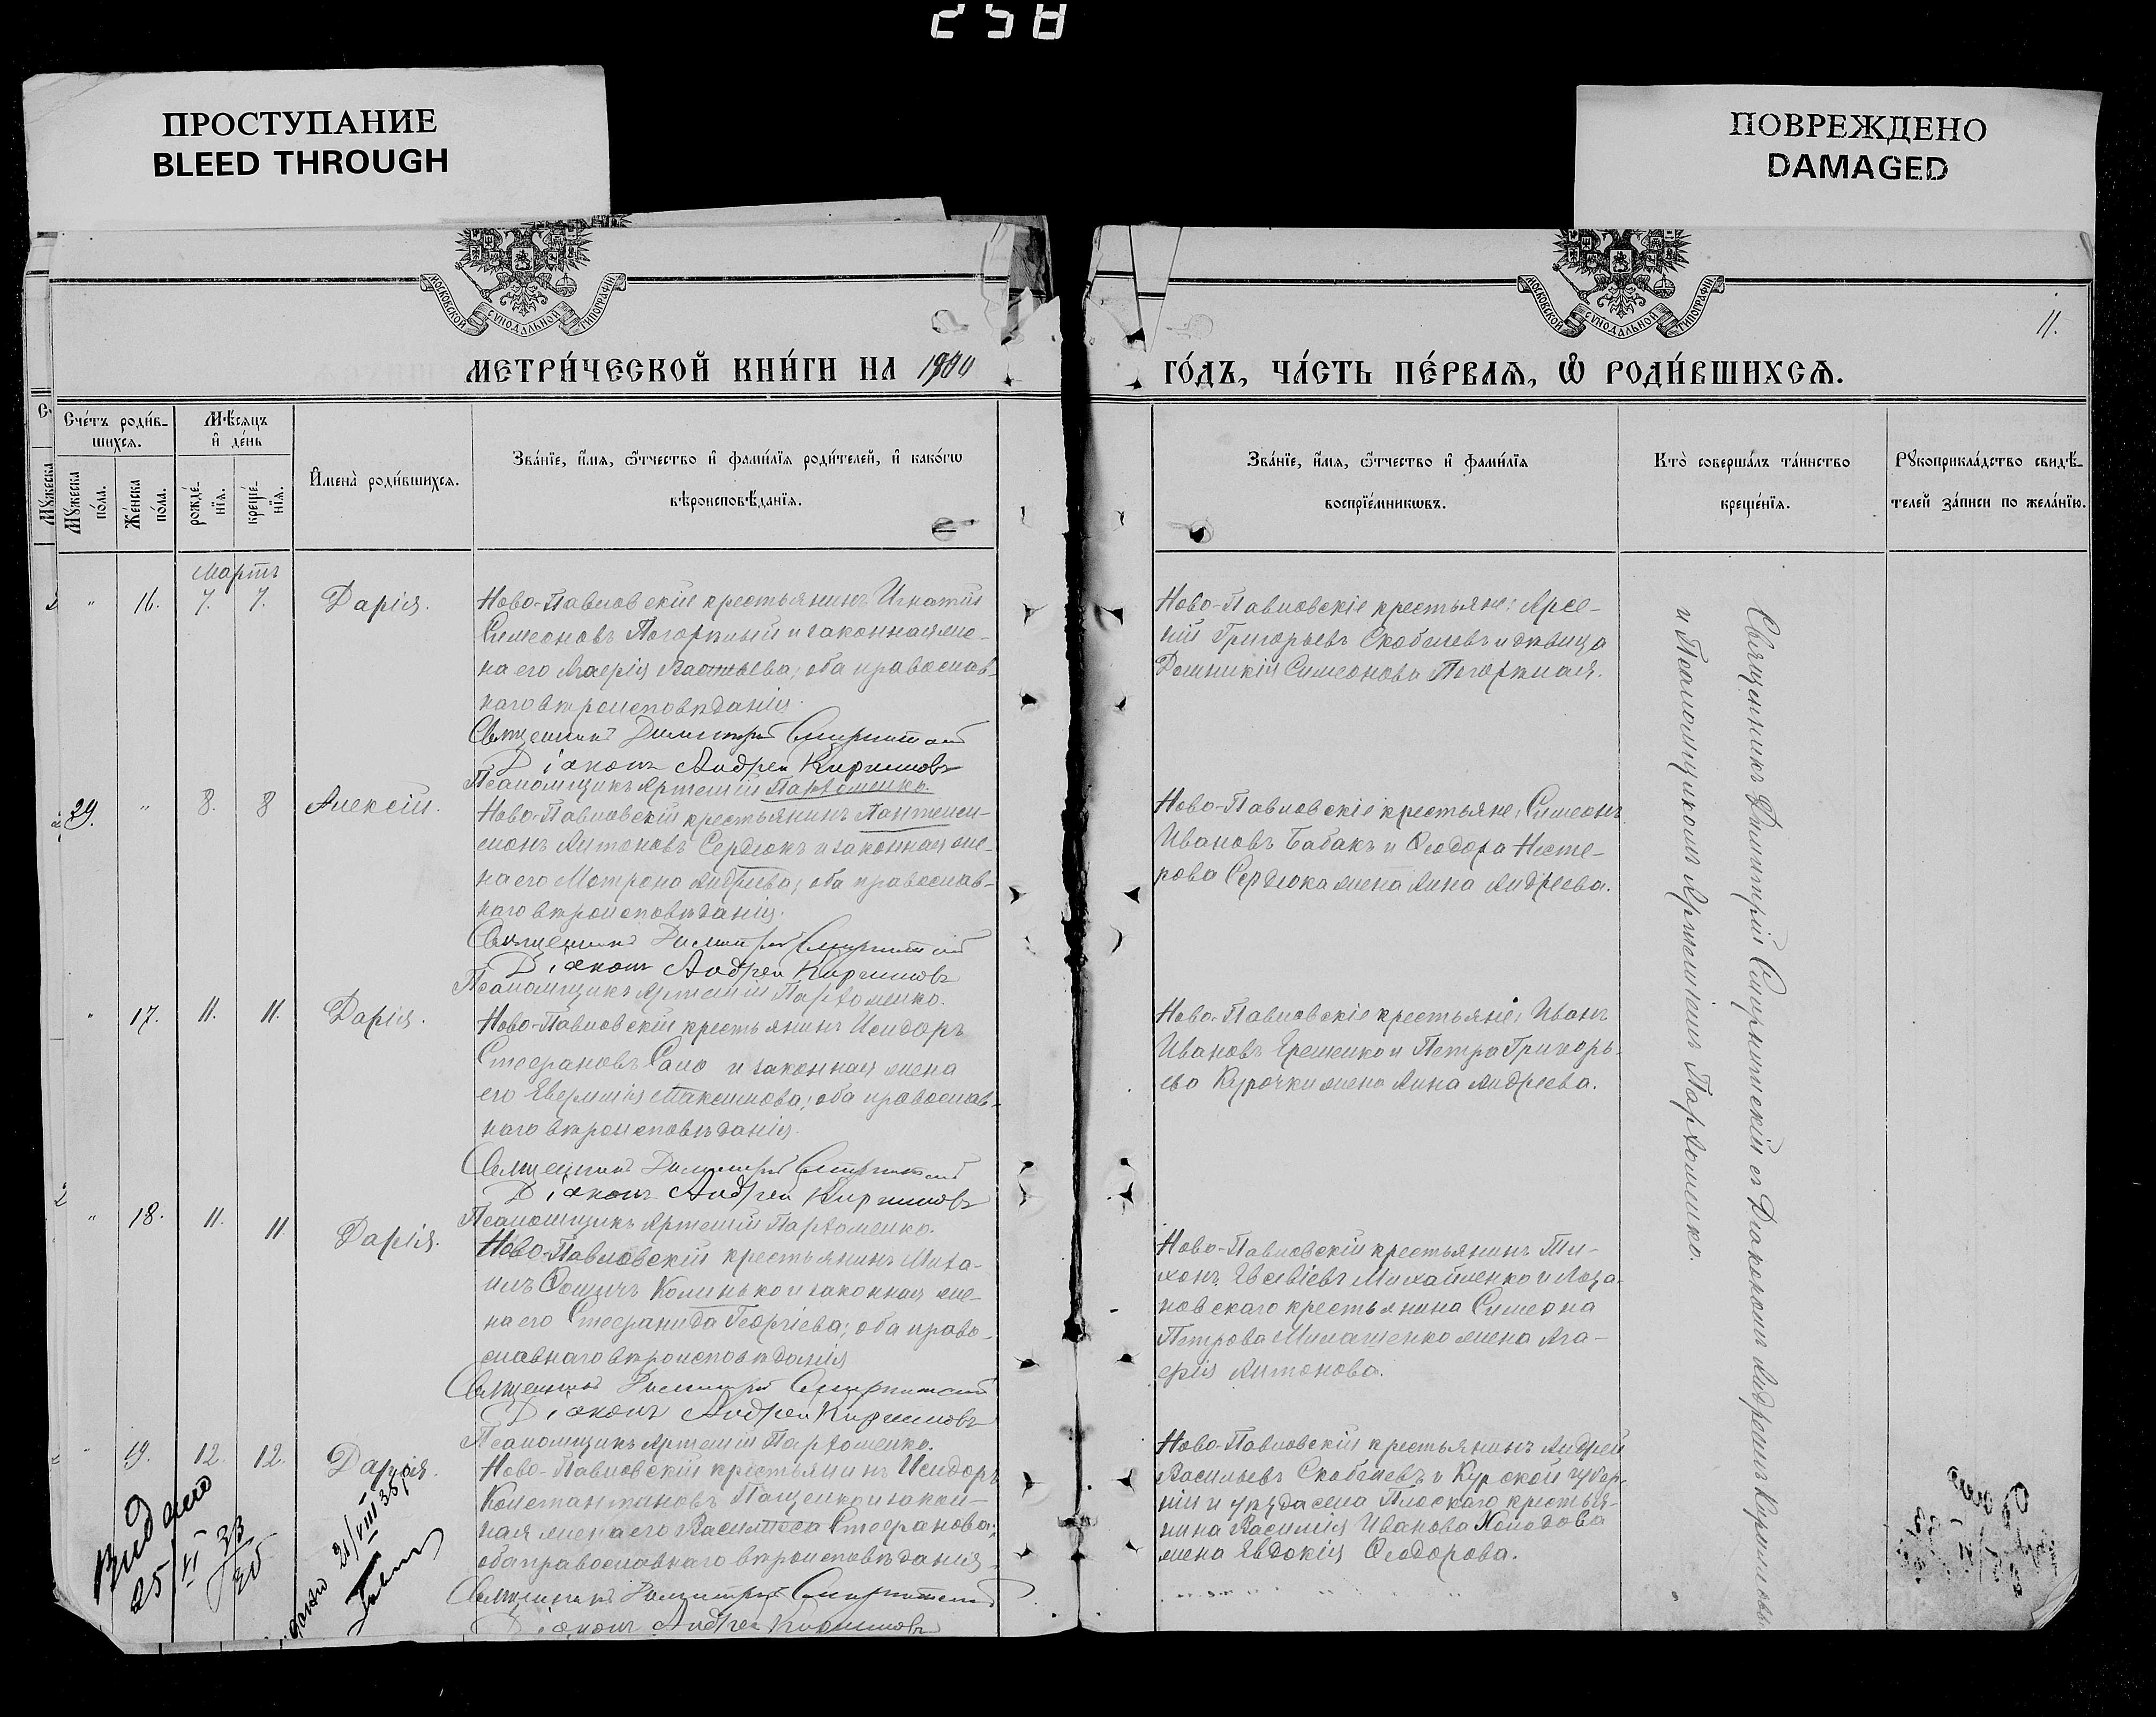 258
ПРОСТУПАНИЕ
BLEED THROUGH
ПОВРЕЖДЕНО
DAMAGED
МОСКОВСКОЙ СѴНОДАЛЬНОЙ ТИПОГРАФІИ
МОСКОВСКОЙ СѴНОДАЛЬНОЙ ТИПОГРАФІИ
11.
МЕТРИ́ЧЕСКОЙ КНИ́ГИ НА 1900
ГО́ДЪ, ЧА́СТЬ ПЕ́РВАѦ, Ѡ҆ РОДИ́ВШИХСѦ.
Сче́тъ роди́в-
шихсѧ.
Мѣ́сяцъ
и҆ де́нь
Мꙋ́жеска
по́ла.
Же́нска
по́ла.
рожде́-
нїѧ.
креще́-
нїѧ.
И҆мена̀ роди́вшихсѧ.
Зва́нїе, и҆́мѧ, ѻ҆́тчество и҆ фами́лїѧ роди́телей, и҆ како́гѡ
вѣроисповѣ́данїѧ.
Зва́нїе, и҆́мѧ, ѻ҆́тчество и҆ фами́лїѧ
воспрїе́мникѡвъ.
Кто̀ соверша́лъ та́инство
креще́нїѧ.
Рꙋкоприкла́дство свидѣ́-
телей за́писи по жела́нїю.
Мартъ
" 16. 7. 7. Дарія.
Ново-Павловскій крестьянинъ Игнатій
Симеоновъ Погорѣлый и законная же-
на его Агаѳія Васильева; оба православ-
наго вѣроисповѣданія.
Священникъ Димитрій Смирнитскій
Діаконъ Андрей Кирилловъ
Псаломщикъ Артемій Пархоменко.
Ново-Павловскіе крестьяне: Арсе-
ній Григорьевъ Скобелевъ и дѣвица
Домникія Симеонова Погорѣлая.
29. " 8. 8 Алексій.
Ново-Павловскій крестьянинъ Пантелей-
монъ Антоновъ Сердюкъ и законная же-
на его Матрона Андреева; оба православ-
наго вѣроисповѣданія.
Священникъ Димитрій Смирнитскій
Діаконъ Андрей Кирилловъ
Псаломщикъ Артемій Пархоменко.
Ново-Павловскіе крестьяне: Симеонъ
Ивановъ Бабакъ и Ѳеодора Несте-
рова Сердюка жена Анна Андреева.
" 17. 11. 11. Дарія.
Ново-Павловскій крестьянинъ Исидоръ
Стефановъ Сало и законная жена
его Евфимія Максимова; оба православ-
наго вѣроисповѣданія.
Священникъ Димитрій Смирнитскій
Діаконъ Андрей Кирилловъ
Псаломщикъ Артемій Пархоменко.
Ново-Павловскіе крестьяне: Иванъ
Ивановъ Ерешенко и Петра Григорь-
ева Курочки жена Анна Андреева.
" 18. 11. 11 Дарія.
Ново-Павловскій крестьянинъ Миха-
илъ Ѳоминъ Колинько и законная же-
на его Стефанида Георгіева; оба право-
славнаго вѣроисповѣданія
Священникъ Димитрій Смирнитскій
Діаконъ Андрей Кирилловъ
Псаломщикъ Артемій Пархоменко.
Ново-Павловскій крестьянинъ Ти-
хонъ Евсевіевъ Михайленко и Лоза-
новскаго крестьянина Симеона
Петрова жена Ага-
ѳія Антонова.
" 19. 12. 12. Дарія.
Ново-Павловскій крестьянинъ Исидоръ
Константиновъ Пащенко и закон-
ная жена его Василисса Стефанова;
оба православнаго вѣроисповѣданія.
Священникъ Димитрій Смирнитскій
Діаконъ Андрей Кирилловъ
Ново-Павловскій крестьянинъ Андрей
Васильевъ Скобелевъ и Курской губер-
ніи и уѣзда села Плоскаго крестья-
нина Василія Иванова Холодова
жена Евдокія Ѳеодорова.
Священникъ Димитрій Смирнитскій съ Діакономъ Андреемъ Кирилловымъ
и Псаломщикомъ Артеміемъ Пархоменко.
Видано
25/VI
21/VIII 35